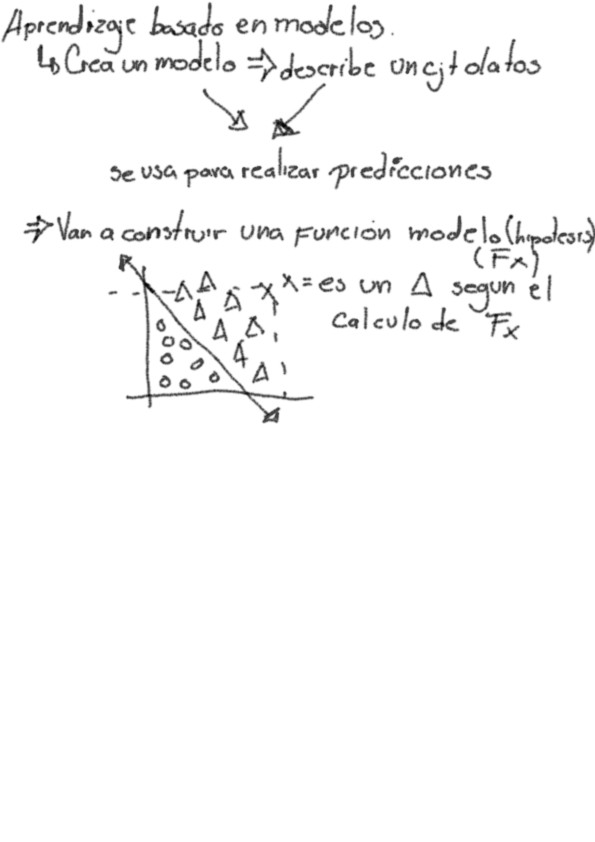 Aprendizaje basado en modelos.
↳ Crea un modelo ⇒ describe un cjt datos
se usa para realizar predicciones
⇒ Van a construir una Función modelo (hipotesis)
(Fx)
x = es un Δ segun el
Calculo de Fx